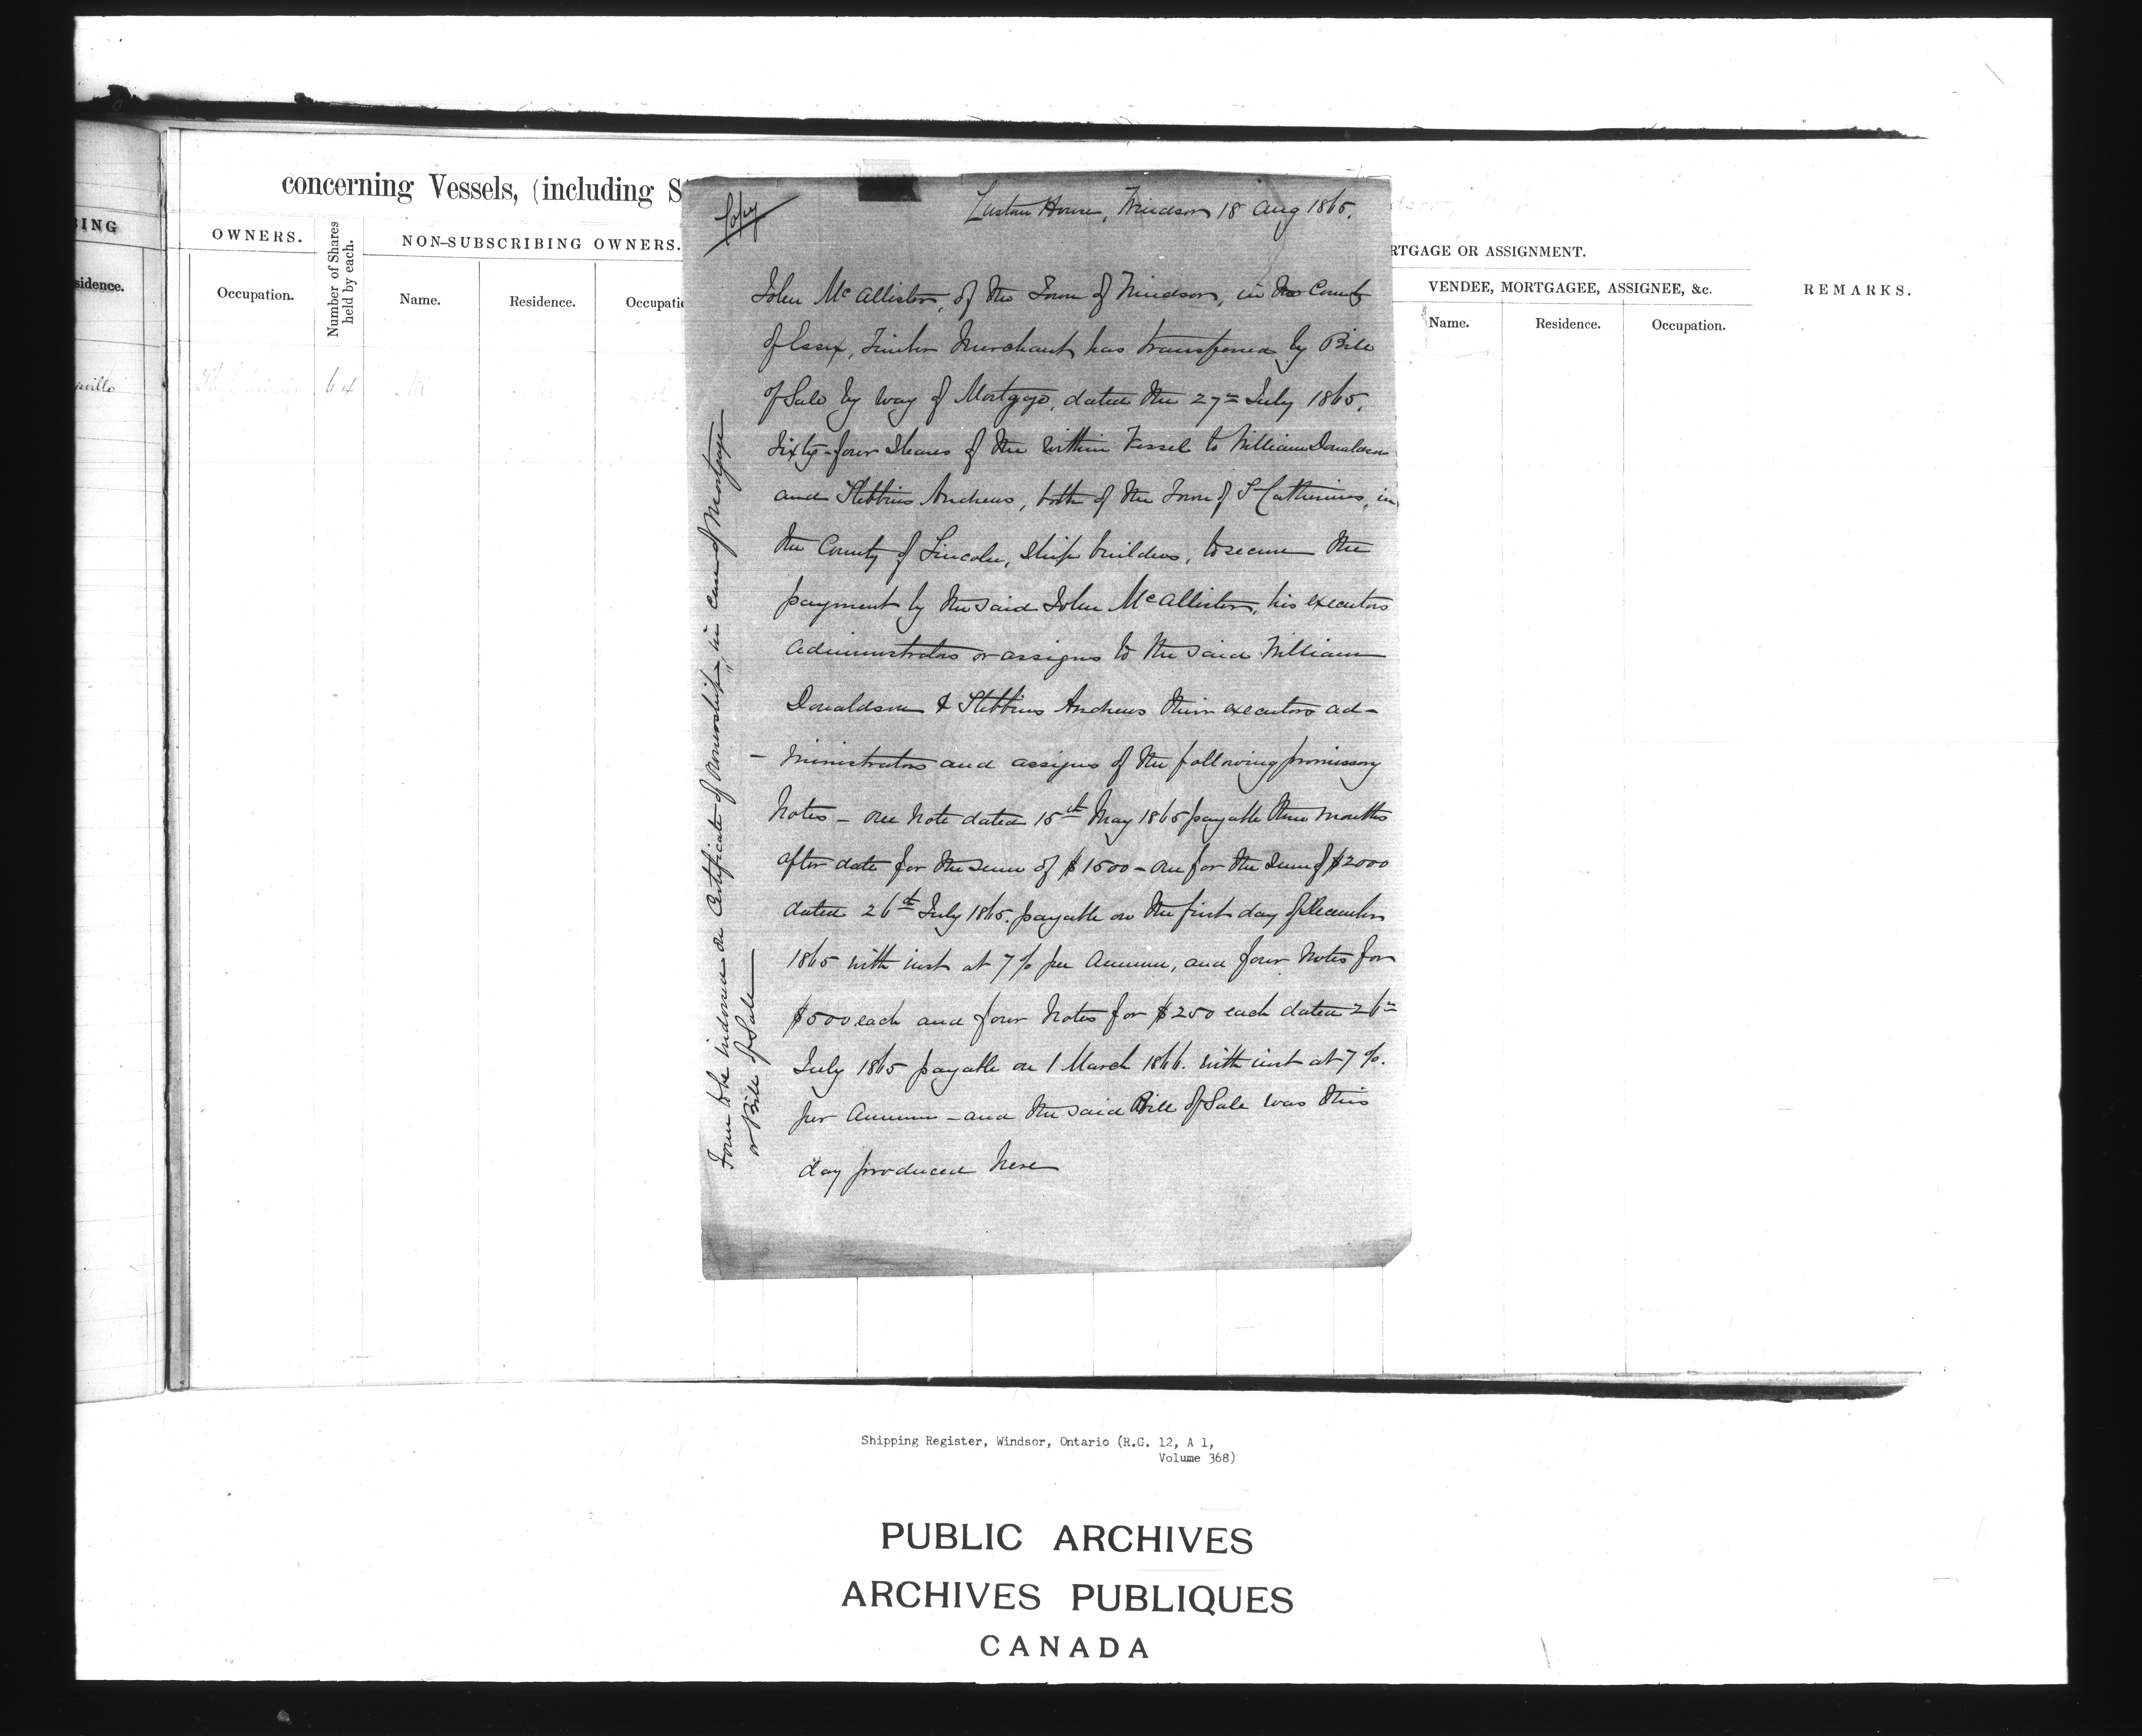 concerning Vessels, (including S
BING
sidence.
OWNERS.
Occupation.
Number of Shares
held by each.
NON-SUBSCRIBING OWNERS.
Name.
Residence.
Occupatio
64
RTGAGE OR ASSIGNMENT.
VENDEE, MORTGAGEE, ASSIGNEE, &c.
Name.
Residence.
Occupation.
REMARKS.
Copy
Custom House, Windsor 18 Aug 1865.
John McAllister, of the Town of Windsor, in the County
of Essex, Timber Merchant has transferred by Bill
of Sale by way of Mortgage, dated the 27th July 1865.
Sixty-four Shares of the within Vessel to William Donaldson
and Stebbins Andrews, both of the Town of St Catherines, in
the County of Lincoln, Ship builders, to secure the
payment by the said John McAllister, his executors
administrators or assigns to the said William
Donaldson & Stebbins Andrews their executors ad-
- ministrators and assigns of the following promissory
Notes - One Note dated 15th May 1865 payable three months
after date for the sum of $1500 - One for the Sum of $2000
dated 26th July 1865. payable on the first day of December
1865 with inst at 7 % per Annum, and four Notes for
$500 each and four Notes for $250 each dated 26th
July 1865 payable on 1 March 1866. with inst at 7 %.
per Annum - and the said Bill of Sale was this
day produced here
Form to be indorsed on Certificate of Ownership, in case of Mortgage
or Bill of Sale
Shipping Register, Windsor, Ontario (R.G. 12, A 1,
Volume 368)
PUBLIC ARCHIVES
ARCHIVES PUBLIQUES
CANADA